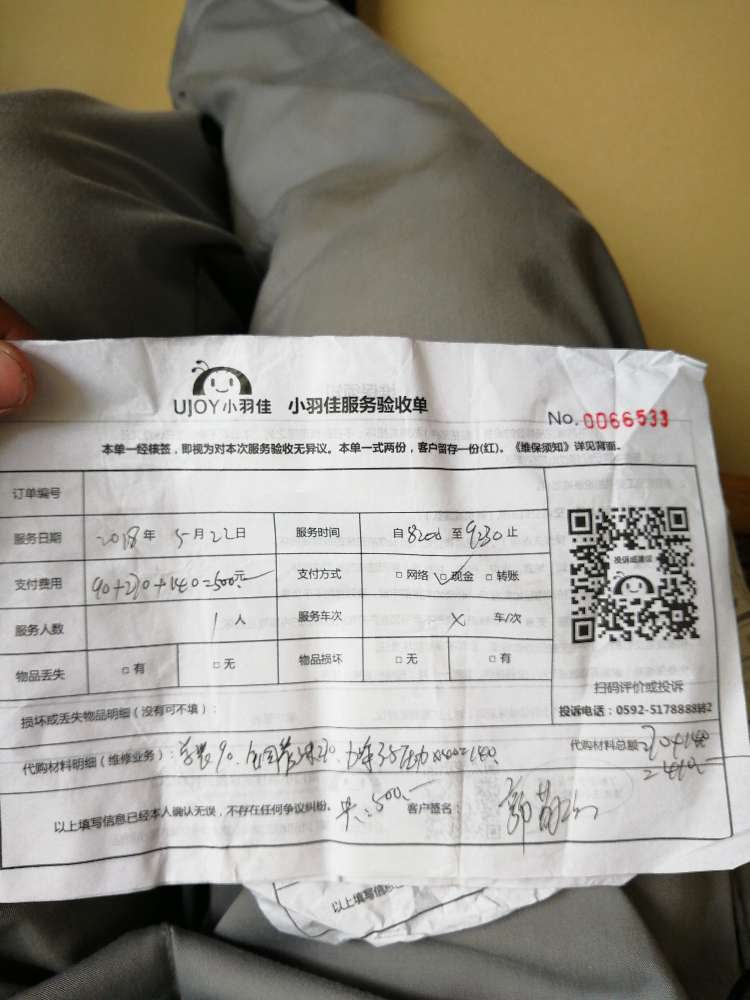 UJOY小羽佳 小羽佳服务验收单
No. 0066533
本单一经核签，即视为对本次服务验收无异议。本单一式两份，客户留存一份(红)。《维保须知》详见背面。
订单编号
服务日期 2018年 5月22日 服务时间 自8:00至9:30止
支付费用 90+270+140=500元 支付方式 □网络 □现金 □转账
服务人数 1人 服务车次 X 车/次
物品丢失 □有 □无 物品损坏 □无 □有
投诉或建议
扫码评价或投诉
投诉电话：0592-5178888转2
损坏或丢失物品明细（没有可不填）：
代购材料明细（维修业务）：安装90、
代购材料总额 270+140
=410.-
以上填写信息已经本人确认无误，不存在任何争议纠纷。 共=500.- 客户签名：
以上填写信息已经